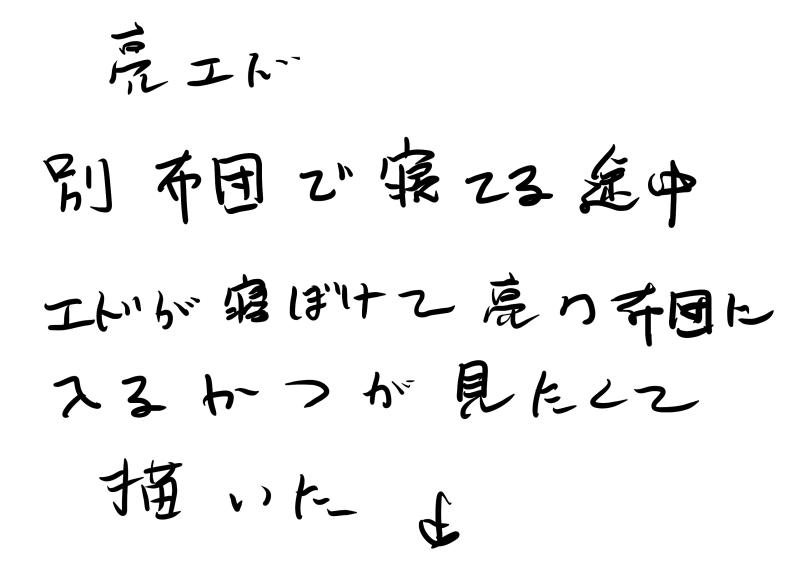 亮エド
別布団で寝てる途中
エドが寝ぼけて亮の布団に
入るかつが見たくて
描いた ↓